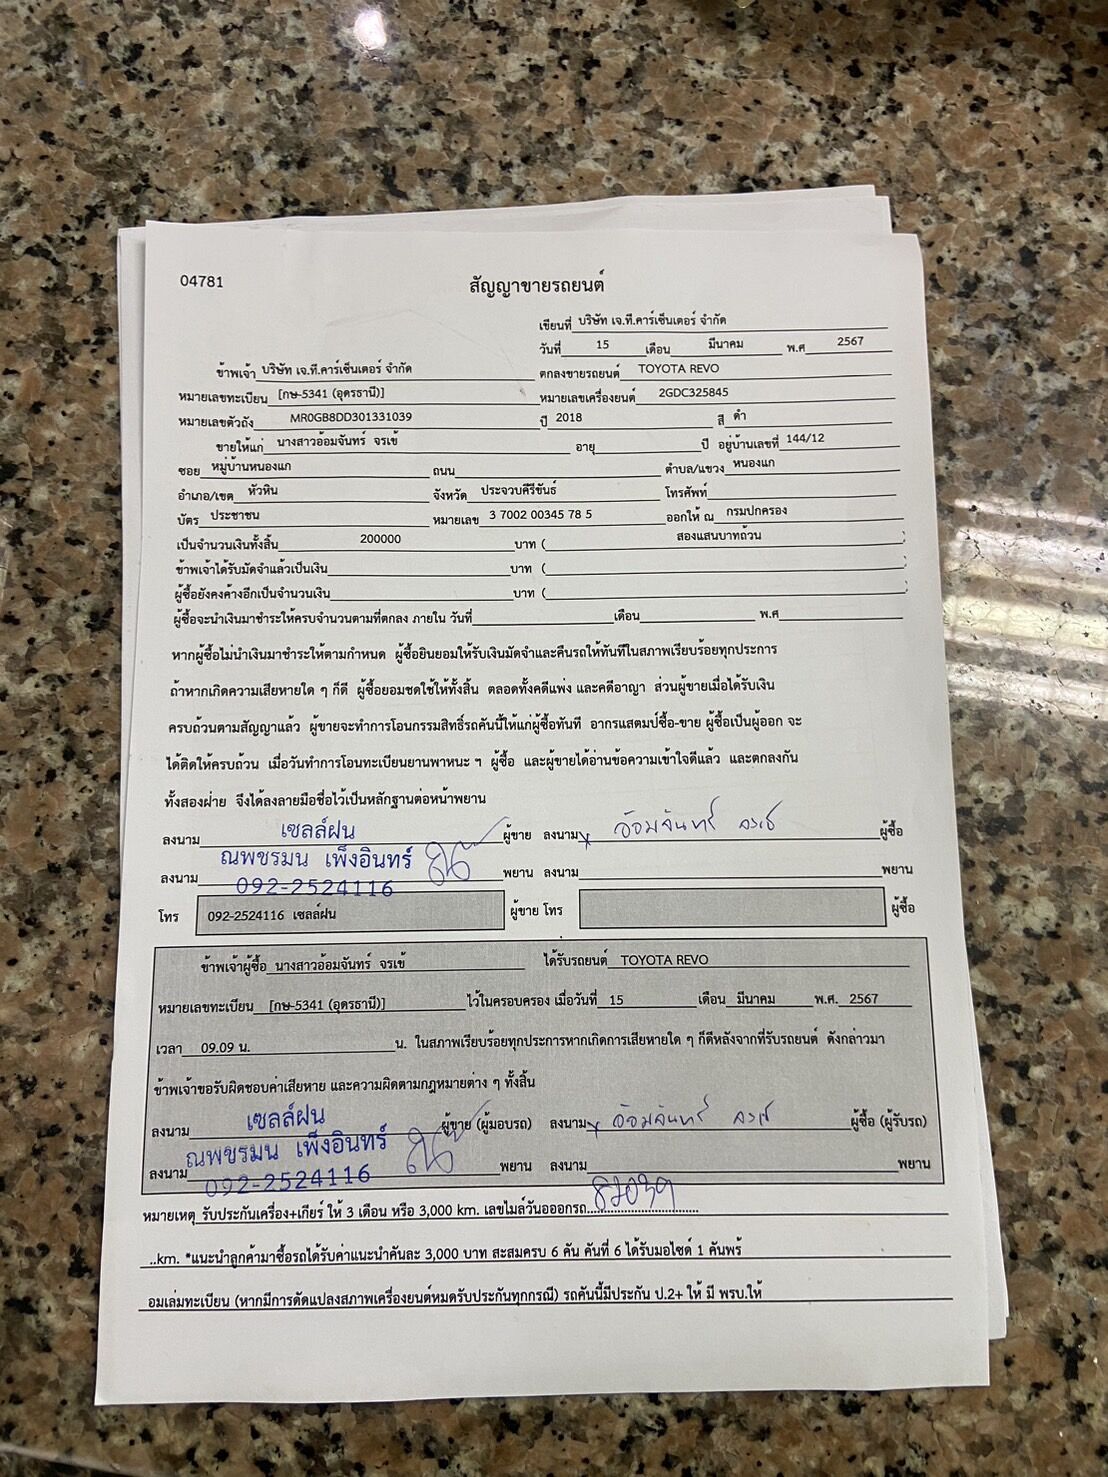 04781
สัญญาขายรถยนต์
เขียนที่ บริษัท เจ.ที.คาร์เซ็นเตอร์ จำกัด
วันที่ 15 เดือน มีนาคม พ.ศ 2567
ข้าพเจ้า บริษัท เจ.ที.คาร์เซ็นเตอร์ จำกัด ตกลงขายรถยนต์ TOYOTA REVO
หมายเลขทะเบียน [กษ-5341 (อุดรธานี)] หมายเลขเครื่องยนต์ 2GDC325845
หมายเลขตัวถัง MR0GB8DD301331039 ปี 2018 สี ดำ
ขายให้แก่ นางสาวอ้อมจันทร์ จรเข้ อายุ ปี อยู่บ้านเลขที่ 144/12
ซอย หมู่บ้านหนองแก ถนน ตำบล/แขวง หนองแก
อำเภอ/เขต หัวหิน จังหวัด ประจวบคีรีขันธ์ โทรศัพท์
บัตร ประชาชน หมายเลข 3 7002 00345 78 5 ออกให้ ณ กรมปกครอง
เป็นจำนวนเงินทั้งสิ้น 200000 บาท ( สองแสนบาทถ้วน )
ข้าพเจ้าได้รับมัดจำแล้วเป็นเงิน บาท ( )
ผู้ซื้อยังคงค้างอีกเป็นจำนวนเงิน บาท ( )
ผู้ซื้อจะนำเงินมาชำระให้ครบจำนวนตามที่ตกลง ภายใน วันที่ เดือน พ.ศ
หากผู้ซื้อไม่นำเงินมาชำระให้ตามกำหนด ผู้ซื้อยินยอมให้รับเงินมัดจำและคืนรถให้ทันทีในสภาพเรียบร้อยทุกประการ
ถ้าหากเกิดความเสียหายใด ๆ ก็ดี ผู้ซื้อยอมชดใช้ให้ทั้งสิ้น ตลอดทั้งคดีแพ่ง และคดีอาญา ส่วนผู้ขายเมื่อได้รับเงิน
ครบถ้วนตามสัญญาแล้ว ผู้ขายจะทำการโอนกรรมสิทธิ์รถคันนี้ให้แก่ผู้ซื้อทันที อากรแสตมป์ซื้อ-ขาย ผู้ซื้อเป็นผู้ออก จะ
ได้ติดให้ครบถ้วน เมื่อวันทำการโอนทะเบียนยานพาหนะ ฯ ผู้ซื้อ และผู้ขายได้อ่านข้อความเข้าใจดีแล้ว และตกลงกัน
ทั้งสองฝ่าย จึงได้ลงลายมือชื่อไว้เป็นหลักฐานต่อหน้าพยาน
ลงนาม เซลล์ฝน ผู้ขาย ลงนาม x อ้อมจันทร์ จรเข้ ผู้ซื้อ
ลงนาม ณพชรมน เพ็งอินทร์ พยาน ลงนาม พยาน
092-2524116
โทร 092-2524116 เซลล์ฝน ผู้ขาย โทร ผู้ซื้อ
ข้าพเจ้าผู้ซื้อ นางสาวอ้อมจันทร์ จรเข้ ได้รับรถยนต์ TOYOTA REVO
หมายเลขทะเบียน [กษ-5341 (อุดรธานี)] ไว้ในครอบครอง เมื่อวันที่ 15 เดือน มีนาคม พ.ศ. 2567
เวลา 09.09 น. น. ในสภาพเรียบร้อยทุกประการหากเกิดการเสียหายใด ๆ ก็ดีหลังจากที่รับรถยนต์ ดังกล่าวมา
ข้าพเจ้าขอรับผิดชอบค่าเสียหาย และความผิดตามกฎหมายต่าง ๆ ทั้งสิ้น
ลงนาม เซลล์ฝน ผู้ขาย (ผู้มอบรถ) ลงนาม x อ้อมจันทร์ จรเข้ ผู้ซื้อ (ผู้รับรถ)
ลงนาม ณพชรมน เพ็งอินทร์ พยาน ลงนาม พยาน
092-2524116
หมายเหตุ รับประกันเครื่อง+เกียร์ ให้ 3 เดือน หรือ 3,000 km. เลขไมล์วันอออกรถ
..km. *แนะนำลูกค้ามาซื้อรถได้รับค่าแนะนำคันละ 3,000 บาท สะสมครบ 6 คัน คันที่ 6 ได้รับมอไซด์ 1 คันพร้
อมเล่มทะเบียน (หากมีการดัดแปลงสภาพเครื่องยนต์หมดรับประกันทุกกรณี) รถคันนี้มีประกัน ป.2+ ให้ มี พรบ.ให้